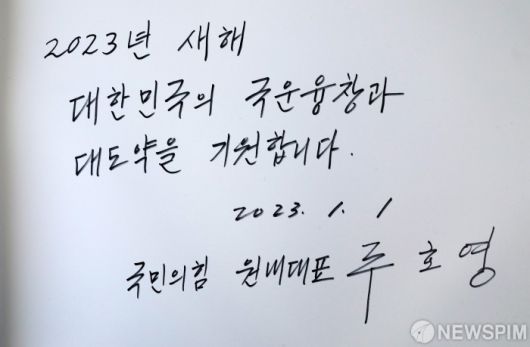 2023년 새해
대한민국의 국운융창과
대도약을 기원합니다.
2023. 1. 1
국민의힘 원내대표 주호영
NEWSPIM